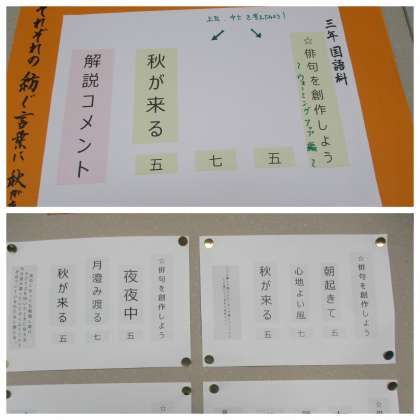 三年 国語科
☆俳句を創作しよう
～ウォーミングアップ編～
上五、中七を考えてみよう！
五
七
秋が来る
五
解説コメント
それぞれの紡ぐ言葉に秋が
☆俳句を創作しよう
朝起きて
五
心地よい風
七
秋が来る
五
☆俳句を創作しよう
夜夜中
五
月澄み渡る
七
秋が来る
五